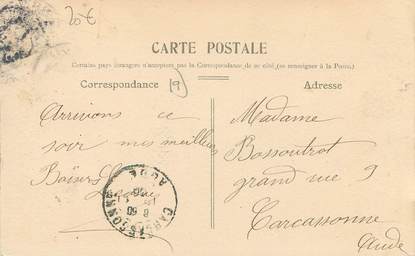 20€
CARTE POSTALE
Certains pays étrangers n'acceptent pas la Correspondance de ce côté, (se renseigner à la Poste.)
Correspondance
19
Adresse
Arrivons ce
soir mis meilleurs
Baisers
Madame
Bossoutrot
grand rue 9
Carcassonne
Aude
CARCASSONNE
AUDE